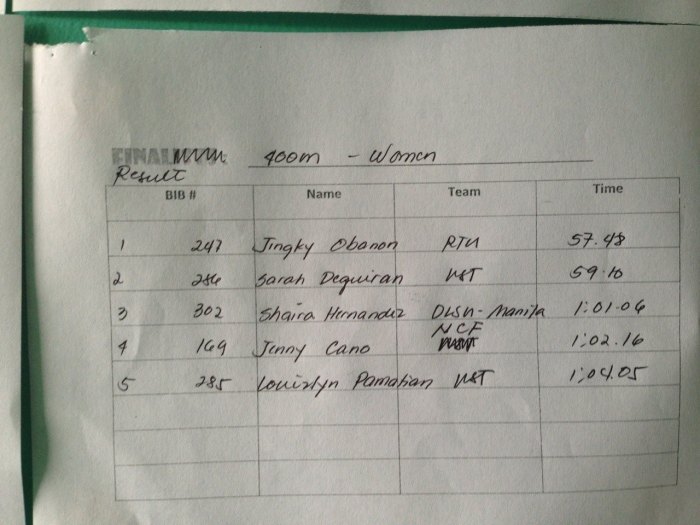 FINAL 400m - Women
Result
BIB # Name Team Time
1 247 Jingky Obanon RTU 57.48
2 286 Sarah Dequiran UST 59.10
3 302 Shaira Hernandez DLSU-Manila 1:01.06
4 169 Jenny Cano NCF 1:02.16
5 285 Pamatian UST 1:04.05